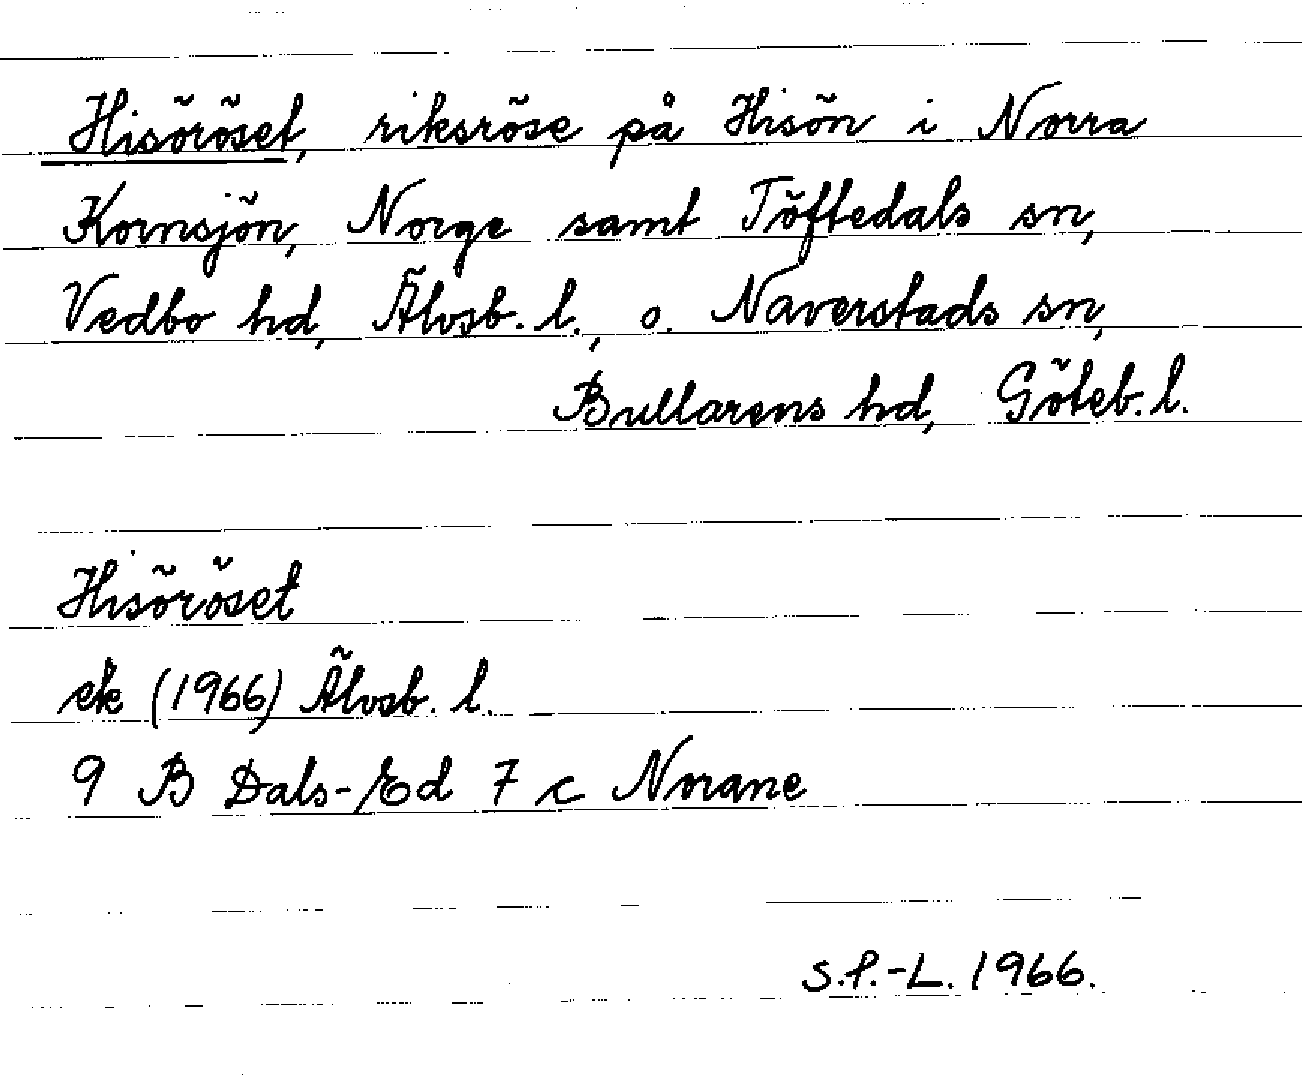 Hisöröset, riksröse på Hisön i Norra
Kornsjön, Norge samt Töftedals sn,
Vedbo hd, Älvsb. l., o. Naverstads sn,
Bullarens hd, Göteb. l.
Hisöröset
ek (1966) Älvsb. l.
9 B Dals-Ed 7 c Norane
S.P.-L. 1966.